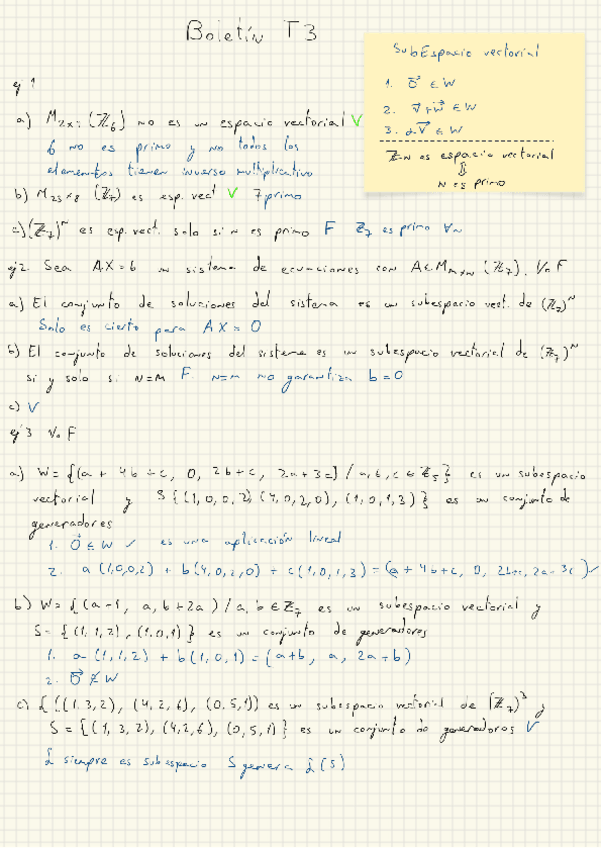 Boletín T3
SubEspacio vectorial
1. 0⃗ ∈ W
2. v⃗ + w⃗ ∈ W
3. α v⃗ ∈ W
ℤn es espacio vectorial
⇕
n es primo
ej 1
a) M2x: (ℤ6) no es un espacio vectorial V
6 no es primo y no todos los
elementos tienen inverso multiplicativo
b) M23x8 (ℤ7) es esp. vect V 7 primo
c) (ℤ7)^n es esp. vect. solo si n es primo F ℤ7 es primo ∀n
ej2. Sea AX=b un sistema de ecuaciones con A∈Mmxn (ℤ7). V o F
a) El conjunto de soluciones del sistema es un subespacio vect. de (ℤ7)^n
Solo es cierto para AX=0
b) El conjunto de soluciones del sistema es un subespacio vectorial de (ℤ7)^n
si y solo si n=m F. n=m no garantiza b=0
c) V
ej 3 V o F
a) W={(a + 4b + c, 0, 2b+c, 2a+3c) / a,b,c ∈ ℤ5} es un subespacio
vectorial y S{(1,0,0,2)(4,0,2,0),(1,0,1,3)} es un conjunto de
generadores
1. 0⃗ ∈ W ✓ es una aplicación lineal
2. a(1,0,0,2) + b(4,0,2,0) + c(1,0,1,3) = (a + 4b + c, 0, 2b+c, 2a-3c) ✓
b) W={(a-1, a, b+2a) / a,b ∈ ℤ7 es un subespacio vectorial y
S={(1,1,2),(1,0,1)} es un conjunto de generadores
1. a(1,1,2) + b(1,0,1) = (a+b, a, 2a+b)
2. 0⃗ ∉ W
c) L{((1,3,2),(4,2,6),(0,5,1)) es un subespacio vectorial de (ℤ7)^3 y
S={(1,3,2),(4,2,6),(0,5,1)} es un conjunto de generadores V
L siempre es subespacio S genera L(S)